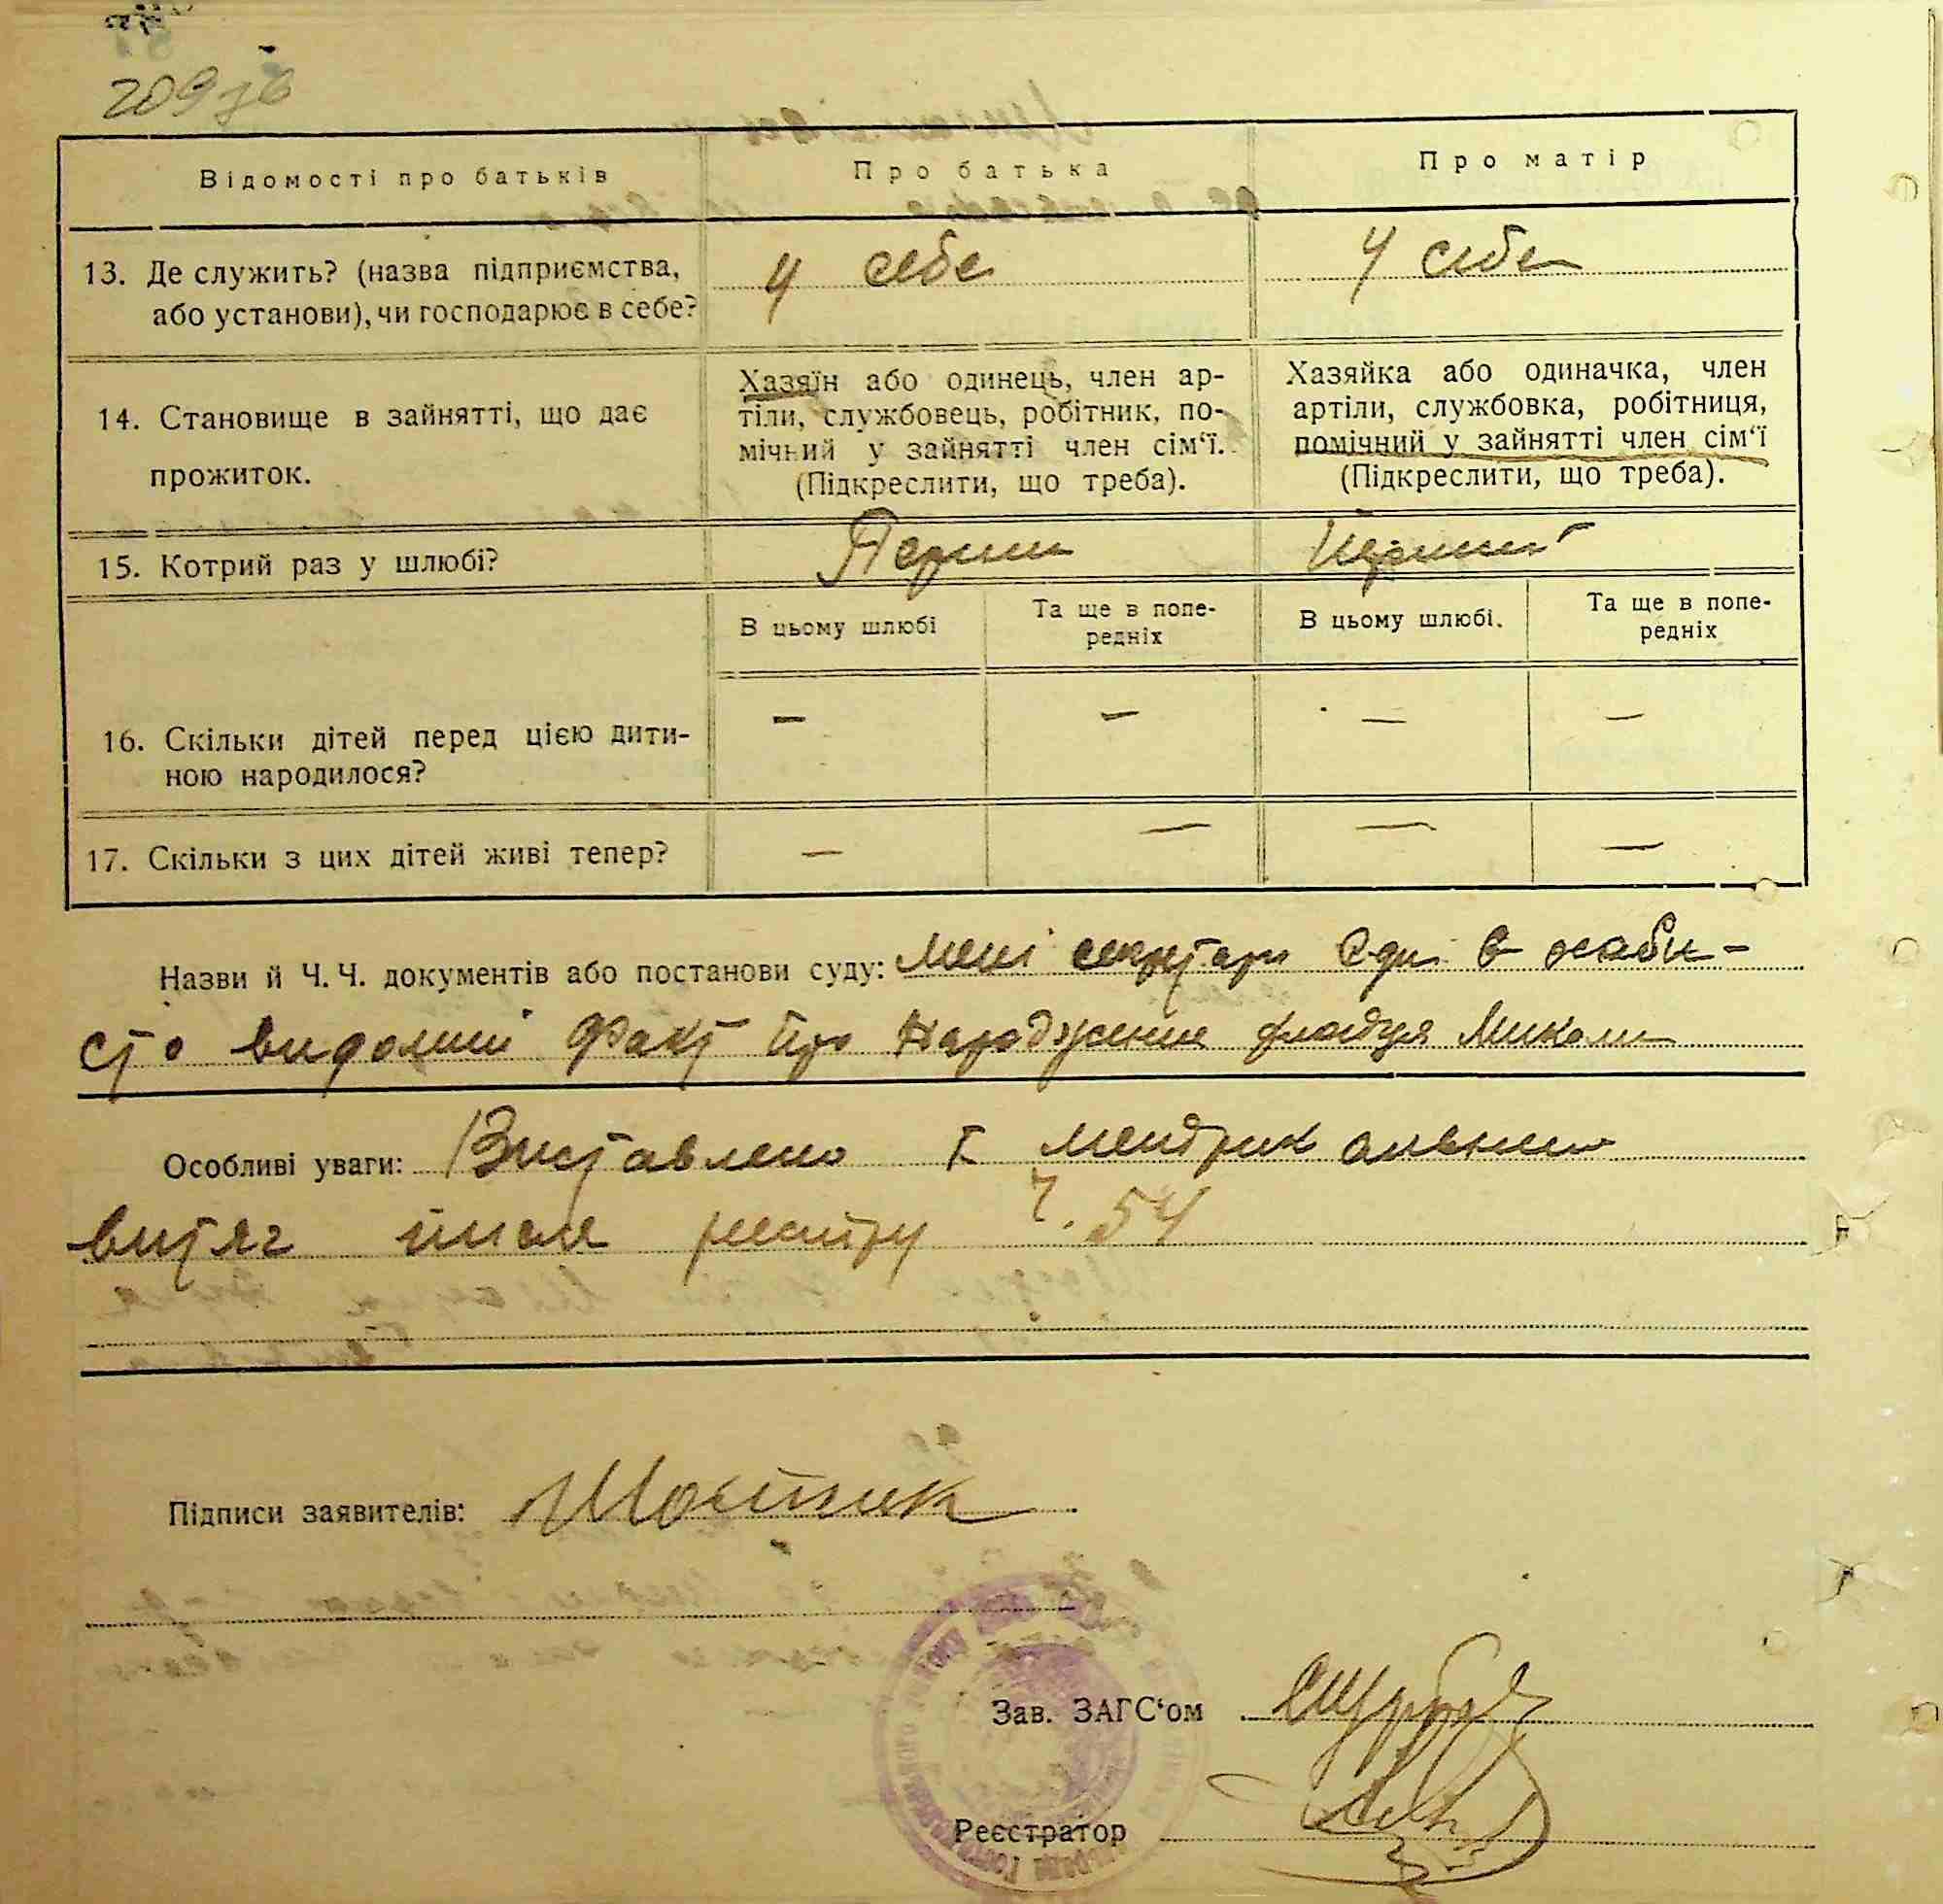 209зв
Відомості про батьків
Про батька
Про матір
13. Де служить? (назва підприємства,
або установи), чи господарює в себе?
У себе
У себе
14. Становище в зайнятті, що дає
прожиток.
Хазяїн або одинець, член ар-
тіли, службовець, робітник, по-
мічний у зайнятті член сім‘ї.
(Підкреслити, що треба).
Хазяйка або одиначка, член
артіли, службовка, робітниця,
помічний у зайнятті член сім‘ї
(Підкреслити, що треба).
15. Котрий раз у шлюбі?
Перший
Перший
В цьому шлюбі
Та ще в попе-
редніх
В цьому шлюбі.
Та ще в попе-
редніх
16. Скільки дітей перед цією дити-
ною народилося?
— — — —
17. Скільки з цих дітей живі тепер?
— — — —
Назви й Ч. Ч. документів або постанови суду: Мені секретарю в особи-
сто видомий факт про народження хлопця Миколи
Особливі уваги: Виставлено
витяг після реєстру Ч. 54
Підписи заявителів:
Зав. ЗАГС‘ом
Реєстратор